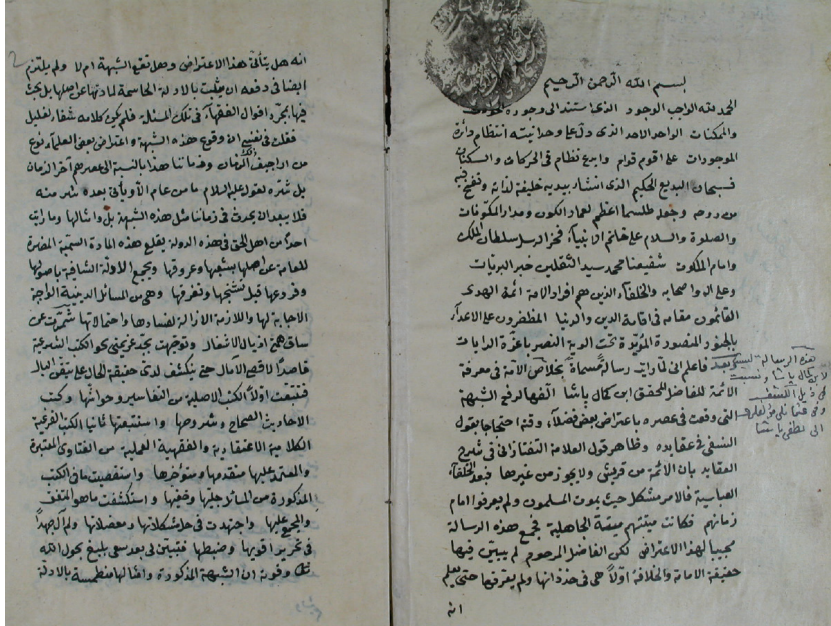 بسم الله الرحمن الرحيم
الحمد لله الواجب الوجود الذى استند الى وجوده
والممكنات الواحد الاحد الذى دل على وحدانيته انتظام دائرة
الموجودات على اقوم قوام وابدع نظام فى الحركات والسكنات
فسبحان البديع الحكيم الذى انشأ بيديه خليفة لذاته ونفخ فيه
من روحه وجعله طلسما اعظم لعماد الكون ومدار المكونات
والصلوة والسلام على خاتم الانبياء فخر الرسل سلطان الملك
وامام الملكوت شفيعنا محمد سيد الثقلين خير البريات
وعلى اله واصحابه والخلفاء الذين هم افراد الامة ائمة الهدى
القائمون مقامه فى اقامة الدين والدنيا المظفرون على الاعداء
بالجنود المنصورة المؤيدة تحت الوية النصر باعزة الرايات
وبعد فاعلم انى لما رايت رسالة مسماة بخلاص الامة فى معرفة
الائمة للفاضل المحقق ابن كمال باشا الفها لرفع الشبهة
التى وقعت فى عصره باعتراض بعض فضلاء وقته احتجاجا بقول
النسفى فى عقايده وظاهر قول العلامة التفتازانى فى شرح
العقايد بان الائمة من قريش ولا يجوز من غيرها فبعد الخلفاء
العباسية فالامر مشكل حيث يموت المسلمون ولم يعرفوا امام
زمانهم فكانت ميتتهم ميتة الجاهلية فجمع هذه الرسالة
مجيبا لهذا الاعتراض لكن الفاضل المرحوم لم يبين فيها
حقيقة الامامة والخلافة اولا هى فى حد ذاتها ولم يعرفها حتى يعلم
انه
هذه الرسالة ليست
لابن كمال باشا ونسبت
فى ذيل الكشف
الى لطفى باشا
انه هل يتأتى هذا الاعتراض وهل تقع الشبهة ام لا ولم يلتزم
ايضا فى دفعه ان يثبت بالادلة الحاسمة لمادتها عن اصلها بل بحث
فيها بمجرد اقوال الفقهاء فى تلك المسئلة فلم يكن كلامه شفاء لغليل
فقلت فى نفسى ان وقوع هذه الشبهة واعتراض بعض العلماء نوع
من اراجيف ذلك الزمان وفى زماننا هذا بالنسبة الى عصرهم آخر الزمان
بل شره لقوله عليه السلام ما من عام الا ويأتى بعده شر منه
فلا يبعد ان يحدث فى زماننا مثل هذه الشبهة بل وامثالها وما رايت
احدا من اهل الحق فى هذه الدولة يقلع هذه المادة السمية المضرة
للعامة عن اصلها بشعبها وعروقها ويجمع الادلة الشافية باصولها
وفروعها قبل وتفرقها وهى من المسائل الدينية الواجبة
الاجابة لها واللازمة الازالة لفسادها واحتمالاتها شمرت عن
ساق اذيال الاشتغال وتوجهت بجد عزيمتى نحو الكتب الشرعية
قاصدا لاقصى الآمال حتى ينكشف لدى حقيقة الحال على تيقن البال
فتتبعت اولا الكتب الاصلية من التفاسير وحواشيها وكتب
الاحاديث الصحاح وشروحها واستتبعتها ثانيا الكتب الفرعية
الكلامية الاعتقادية والفقهية العملية من الفتاوى المعتبرة
والمعتمد عليها متقدمها ومتأخرها واستقصيت ما فى الكتب
المذكورة من المسائل جليها وخفيها واستكشفت ما هو المتفق
والمجمع عليها واجتهدت فى حل مشكلاتها ومعضلاتها ولم آل جهدا
فى تحرير اقويها وضبطها فتبين لى بعد سعى بليغ بحول الله
تعالى وقوته ان الشبهة المذكورة وامثالها منطمسة بالادلة